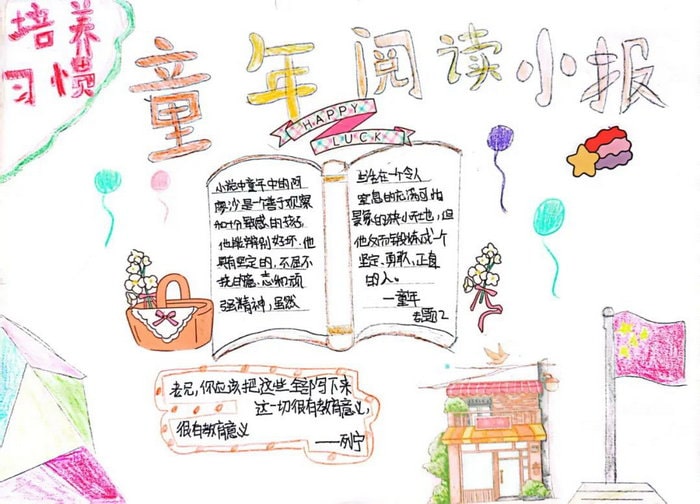 培养
习惯
童年阅读小报
HAPPY
LUCK
小说中童年中的阿
廖沙是一个善于观察
和十分敏感的孩子,
他能辨别好坏.他
具有坚定的,不屈不
挠
志和顽
强精神,虽然
生在一个令人
窒息的充满可怕
景象的狭小天地,但
他反而锻炼成一个
坚定、勇敢、正直
的人。
—童年
专题2
老兄,你应该把这些全部写下来
这一切很有教育意义,
很有教育意义
——列宁